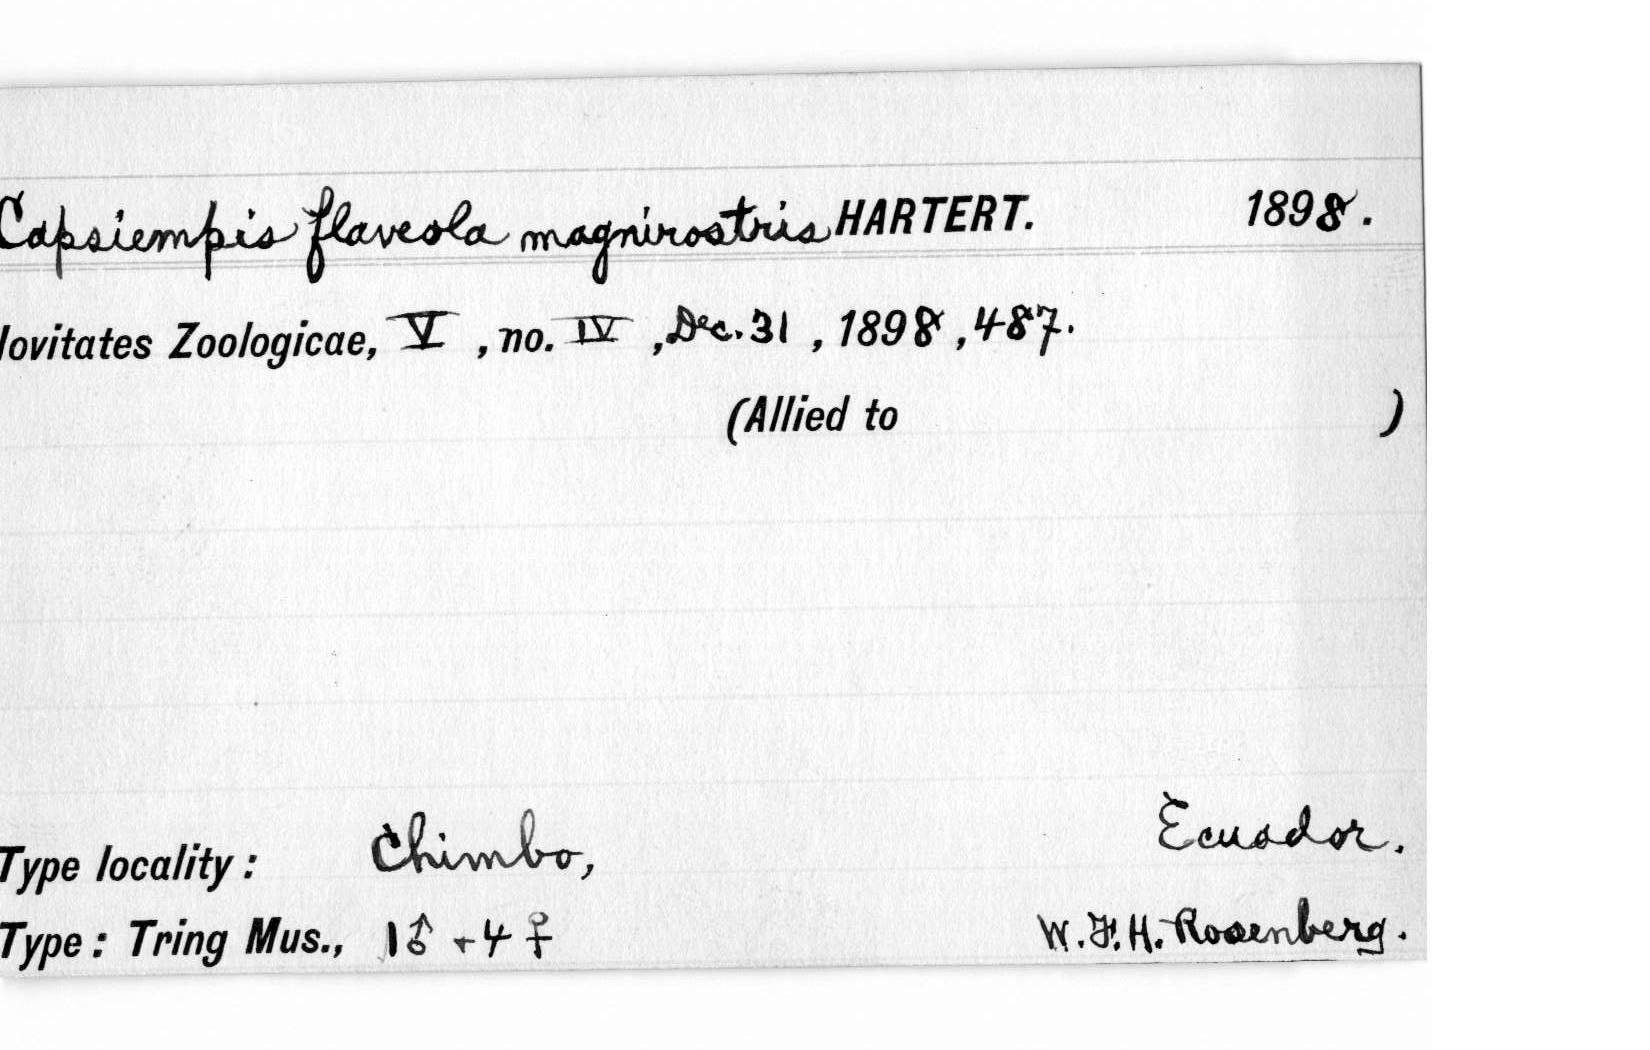 Capsiempis flaveola magnirostris HARTERT. 1898.
ovitates Zoologicae, V, no. IV, Dec. 31, 1898, 487.
(Allied to )
Type locality: Chimbo, Ecuador.
Type: Tring Mus., 1♂ + 4♀ W.F.H. Rosenberg.